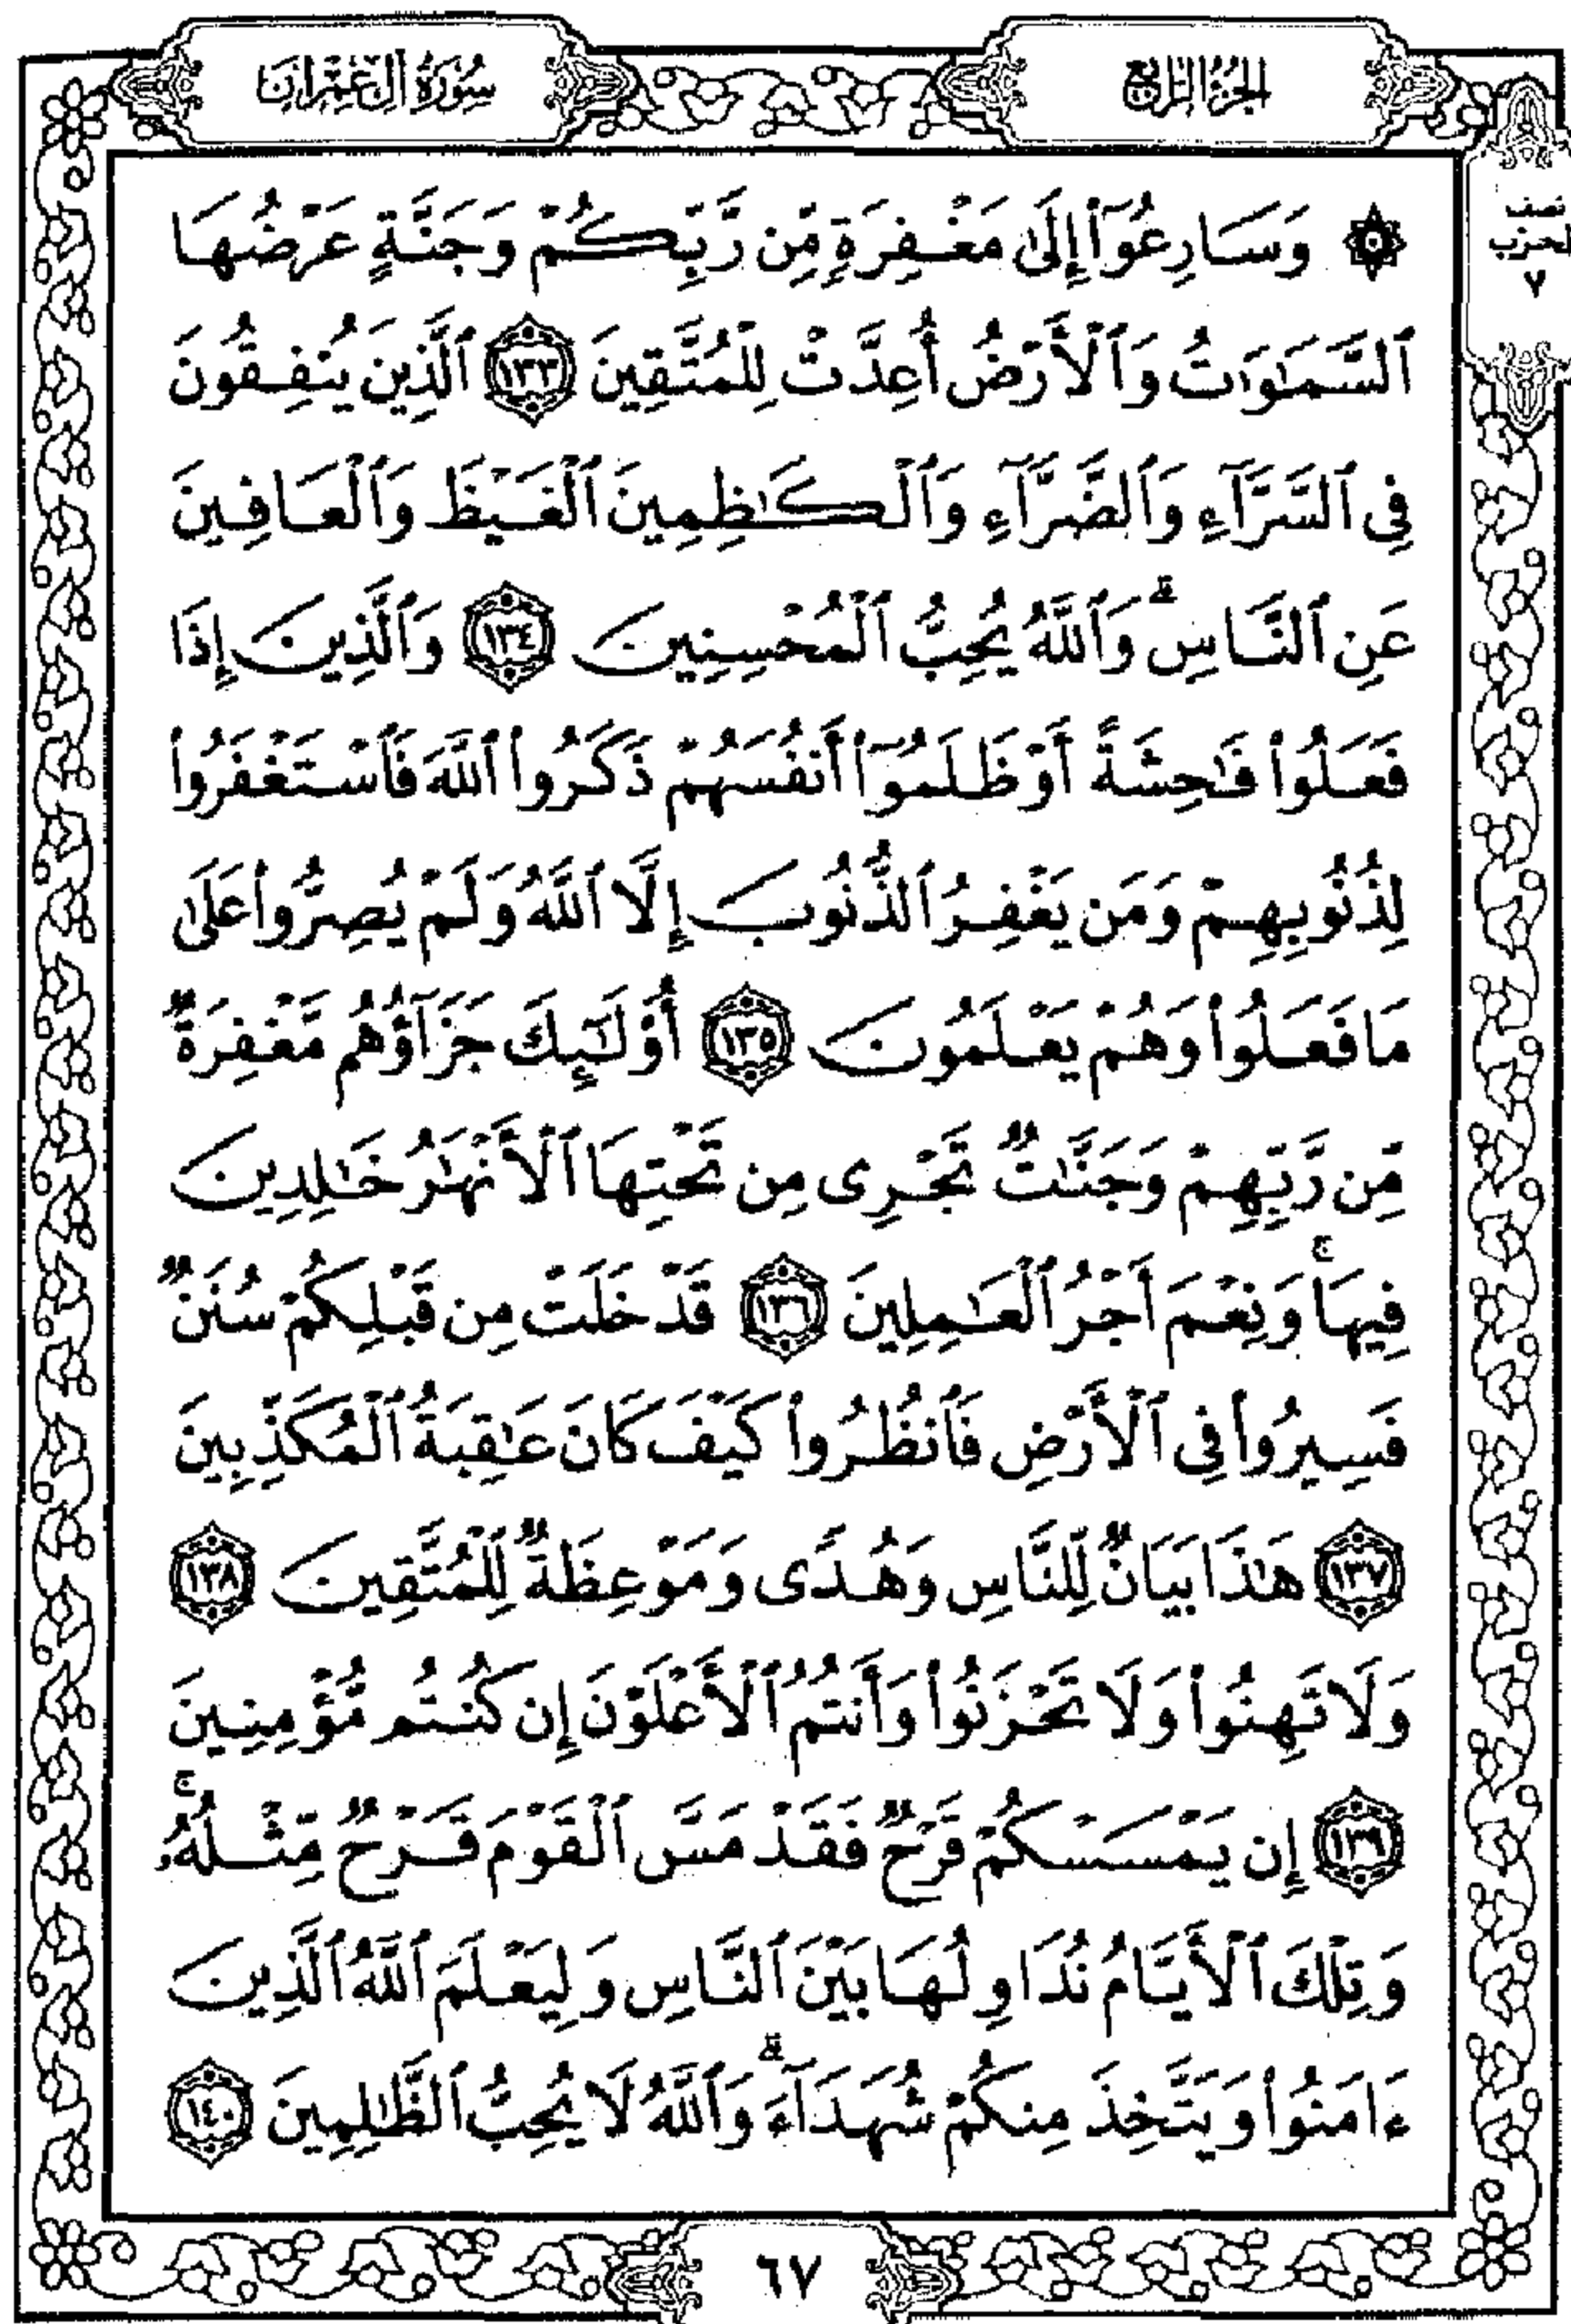 سُورَةُ آلِ عِمْرَانَ
الجُزْءُ الرَّابِعُ
نصف
الحزب
٧
۞ وَسَارِعُوٓا۟ إِلَىٰ مَغْفِرَةٍ مِّن رَّبِّكُمْ وَجَنَّةٍ عَرْضُهَا
ٱلسَّمَٰوَٰتُ وَٱلْأَرْضُ أُعِدَّتْ لِلْمُتَّقِينَ ١٣٣ ٱلَّذِينَ يُنفِقُونَ
فِى ٱلسَّرَّآءِ وَٱلضَّرَّآءِ وَٱلْكَٰظِمِينَ ٱلْغَيْظَ وَٱلْعَافِينَ
عَنِ ٱلنَّاسِ ۗ وَٱللَّهُ يُحِبُّ ٱلْمُحْسِنِينَ ١٣٤ وَٱلَّذِينَ إِذَا
فَعَلُوا۟ فَٰحِشَةً أَوْ ظَلَمُوٓا۟ أَنفُسَهُمْ ذَكَرُوا۟ ٱللَّهَ فَٱسْتَغْفَرُوا۟
لِذُنُوبِهِمْ وَمَن يَغْفِرُ ٱلذُّنُوبَ إِلَّا ٱللَّهُ وَلَمْ يُصِرُّوا۟ عَلَىٰ
مَا فَعَلُوا۟ وَهُمْ يَعْلَمُونَ ١٣٥ أُو۟لَٰٓئِكَ جَزَآؤُهُم مَّغْفِرَةٌ
مِّن رَّبِّهِمْ وَجَنَّٰتٌ تَجْرِى مِن تَحْتِهَا ٱلْأَنْهَٰرُ خَٰلِدِينَ
فِيهَا ۚ وَنِعْمَ أَجْرُ ٱلْعَٰمِلِينَ ١٣٦ قَدْ خَلَتْ مِن قَبْلِكُمْ سُنَنٌ
فَسِيرُوا۟ فِى ٱلْأَرْضِ فَٱنظُرُوا۟ كَيْفَ كَانَ عَٰقِبَةُ ٱلْمُكَذِّبِينَ
١٣٧ هَٰذَا بَيَانٌ لِّلنَّاسِ وَهُدًى وَمَوْعِظَةٌ لِّلْمُتَّقِينَ ١٣٨
وَلَا تَهِنُوا۟ وَلَا تَحْزَنُوا۟ وَأَنتُمُ ٱلْأَعْلَوْنَ إِن كُنتُم مُّؤْمِنِينَ
١٣٩ إِن يَمْسَسْكُمْ قَرْحٌ فَقَدْ مَسَّ ٱلْقَوْمَ قَرْحٌ مِّثْلُهُۥ ۚ
وَتِلْكَ ٱلْأَيَّامُ نُدَاوِلُهَا بَيْنَ ٱلنَّاسِ وَلِيَعْلَمَ ٱللَّهُ ٱلَّذِينَ
ءَامَنُوا۟ وَيَتَّخِذَ مِنكُمْ شُهَدَآءَ ۗ وَٱللَّهُ لَا يُحِبُّ ٱلظَّٰلِمِينَ ١٤٠
٦٧